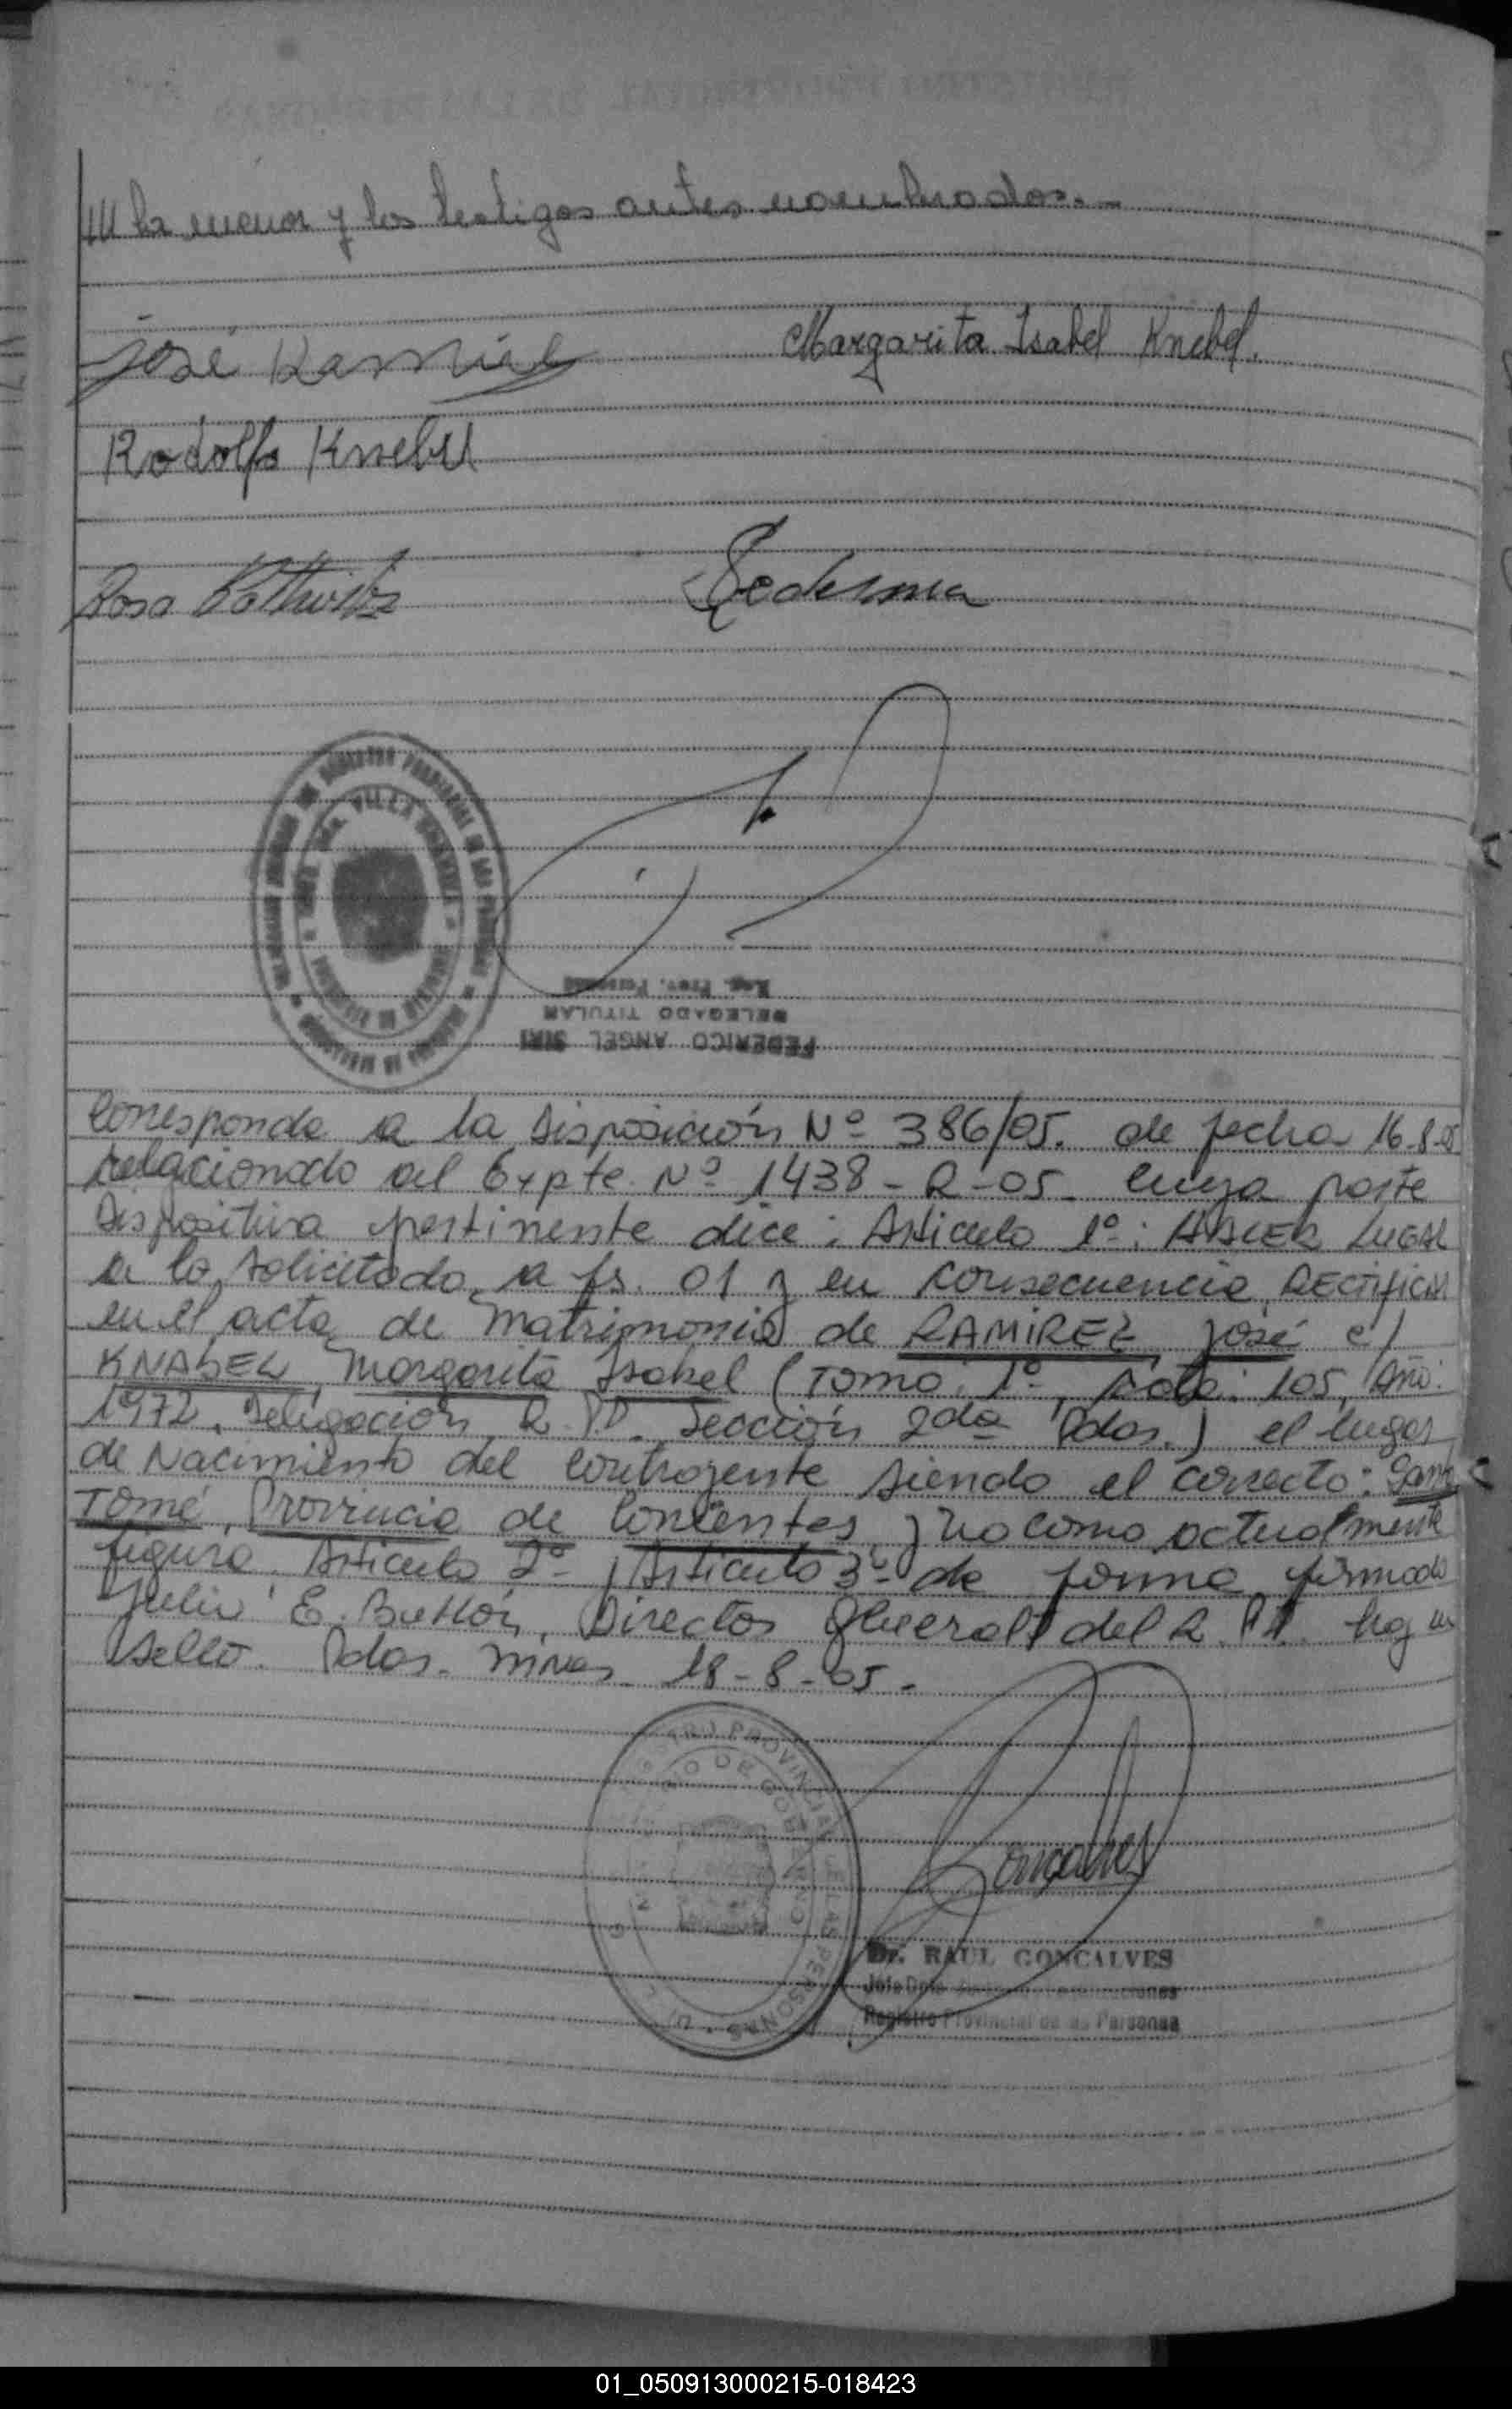 /// la menor y los testigos antes nombrados.-
José Ramírez
Margarita Isabel Knebel.
Rodolfo Knebel
Rosa
Ledesma
Reg. Prov. Personas
DELEGADO TITULAR
FEDERICO ANGEL SIRI
Corresponde a la Disposición Nº 386/05. de fecha 16-8-05
relacionado al Expte. Nº 1438-R-05. cuya parte
Dispositiva pertinente dice: Articulo 1º: HACER LUGAR
a lo solicitado a fs. 01 y en consecuencia, RECTIFICAR
en el acta de Matrimonio de RAMIREZ, José c/
KNABEL, Margarita Isabel (Tomo: 1º, Acta: 105, Año:
1972, Delegación R.P.P. Sección 2da Pdas.) el lugar
de Nacimiento del contrayente siendo el correcto: Santo
Tomé, Provincia de Corrientes y no como actualmente
figura. Articulo 2º y Articulo 3º de forma, firmado
Julio E. Buttón, Director General del R.P.P. hay un
sello. Pdas. Mnes. 18-8-05.-
REGISTRO PROVINCIAL DE LAS PERSONAS
DE GOBIERNO
Goncalves
Dr. RAUL GONCALVES
Jefe Dpto.
Registro Provincial de las Personas
01_050913000215-018423